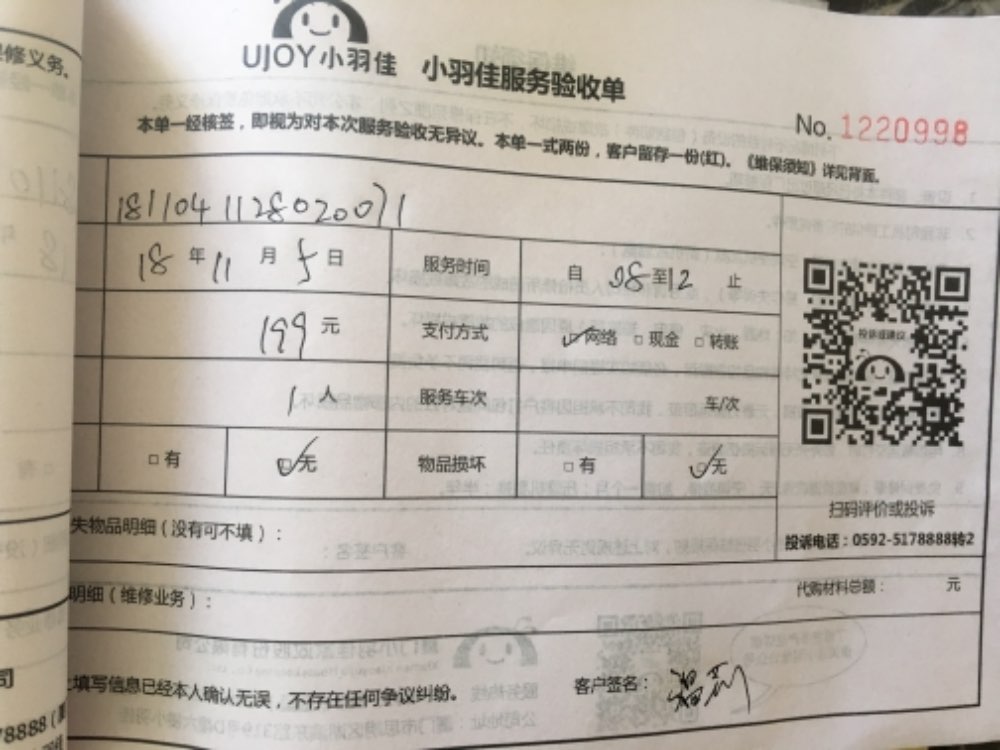 修义务。
UJOY小羽佳 小羽佳服务验收单
No. 1220998
本单一经核签，即视为对本次服务验收无异议。本单一式两份，客户留存一份(红)。《维保须知》详见背面。
1811041128020071
18 年 11 月 5 日 服务时间 自 08 至 12 止
199 元 支付方式 ☑网络 □现金 □转账
投诉或建议
1 人 服务车次 车/次
□有 ☑无 物品损坏 □有 ☑无
扫码评价或投诉
失物品明细（没有可不填）：
投诉电话：0592-5178888转2
明细（维修业务）： 代购材料总额： 元
司
填写信息已经本人确认无误，不存在任何争议纠纷。 客户签名：
78888